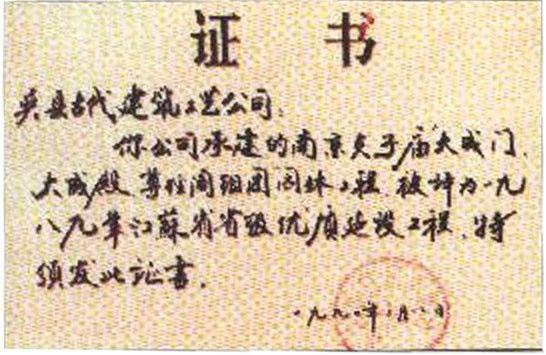 证书
吴县古代建筑工艺公司:
你公司承建的南京夫子庙大成门、
大成殿、尊经阁组团园林工程,被评为一九
八九年江苏省省级优质建设工程,特
颁发此证书。
一九九〇年 月 日